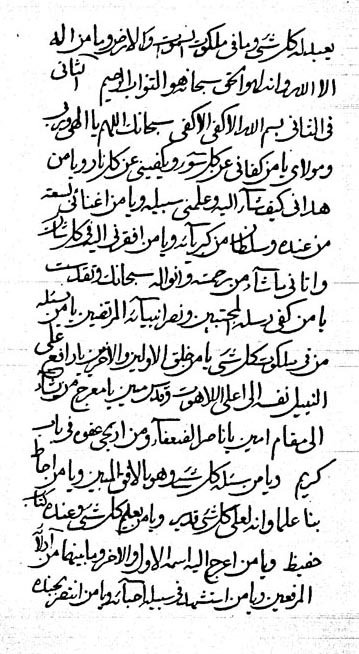 يعبد له كل شئ وما فى ملكوت السموت والارض ويا من اله
الا الله وانه لهو الحق سبحانه هو التواب الرحيم الثانى
فى الثانى بسم الله الاكفى الاكفى سبحانك اللهم يا الهى وربى
ومولاى يا من كفانى عن كل سوء ويكفينى عن كل نار ويا من
هدانى كيف شاء اليه وعلمنى سبيله ويا من اغنانى بسعة
من عنده وسلطان من كبريائه ويا من افقرنى اليه فى كل شان
واتانى ما شاء من رحمته وانواله سبحانك وتقدست
يا من كفى رسله المجتبين ونصر انبيائه المرتضين يا من يسئله
من فى ملكوت كل شئ يا من خلق الاولين والاخرين يا رافع على
النبيل نفسه الى اعلى اللاهوت وقدس مبين يا معرج من يشاء
الى مقام امين يا ناصر الضعفاء ومن ارتجى عفوه فى باب
كريم ويا من يسئله كل شئ وهو بالافق المبين ويا من احاط
بنا علما وانه لعلى كل شئ قدير ويا من يعلم كل شئ وعنده كتاب
حفيظ ويا من ارجع اليه اسمه الاول والاخر وما بينهما من
المرفعين ويا من استشهد فى سبيله احبائه ويا من انتصر بجنده